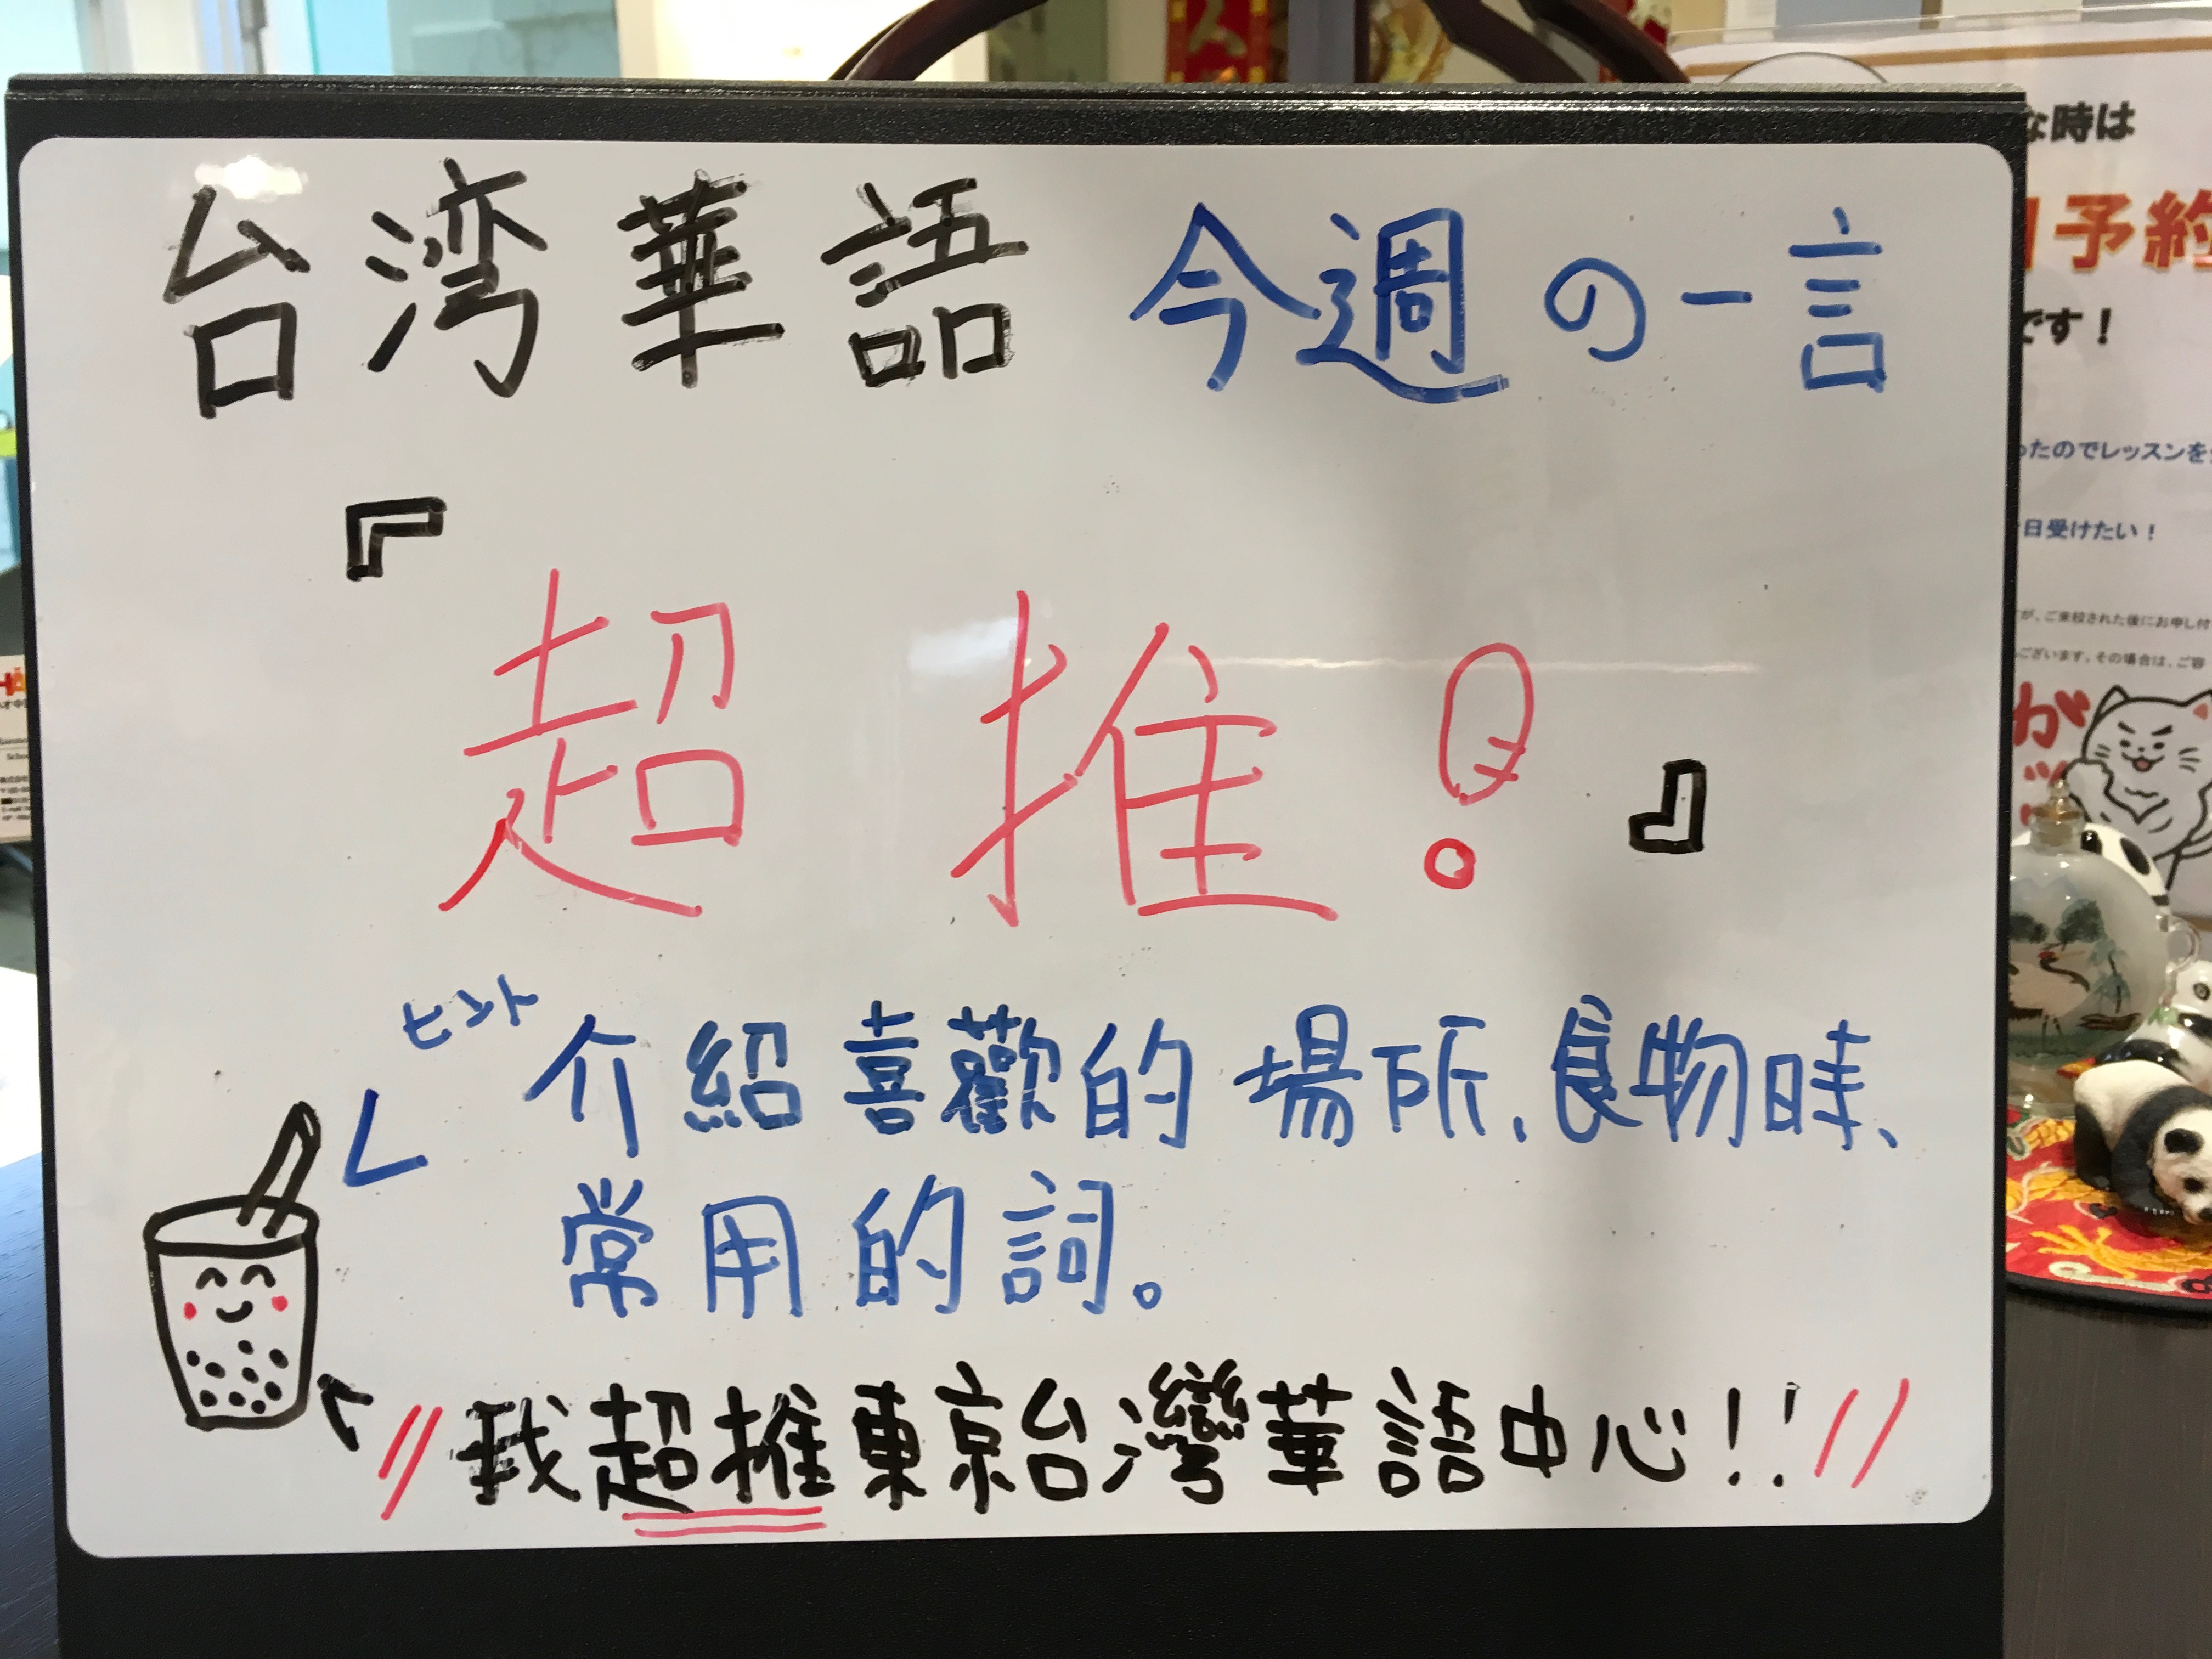 台湾華語 今週の一言
『超推!』
ヒント
介紹喜歡的場所、食物時、
常用的詞。
我超推東京台灣華語中心!!
な時は
予約
です!
ったのでレッスンを
日受けたい!
が、ご来校された後にお申し付
ございます。その場合は、ご容
が